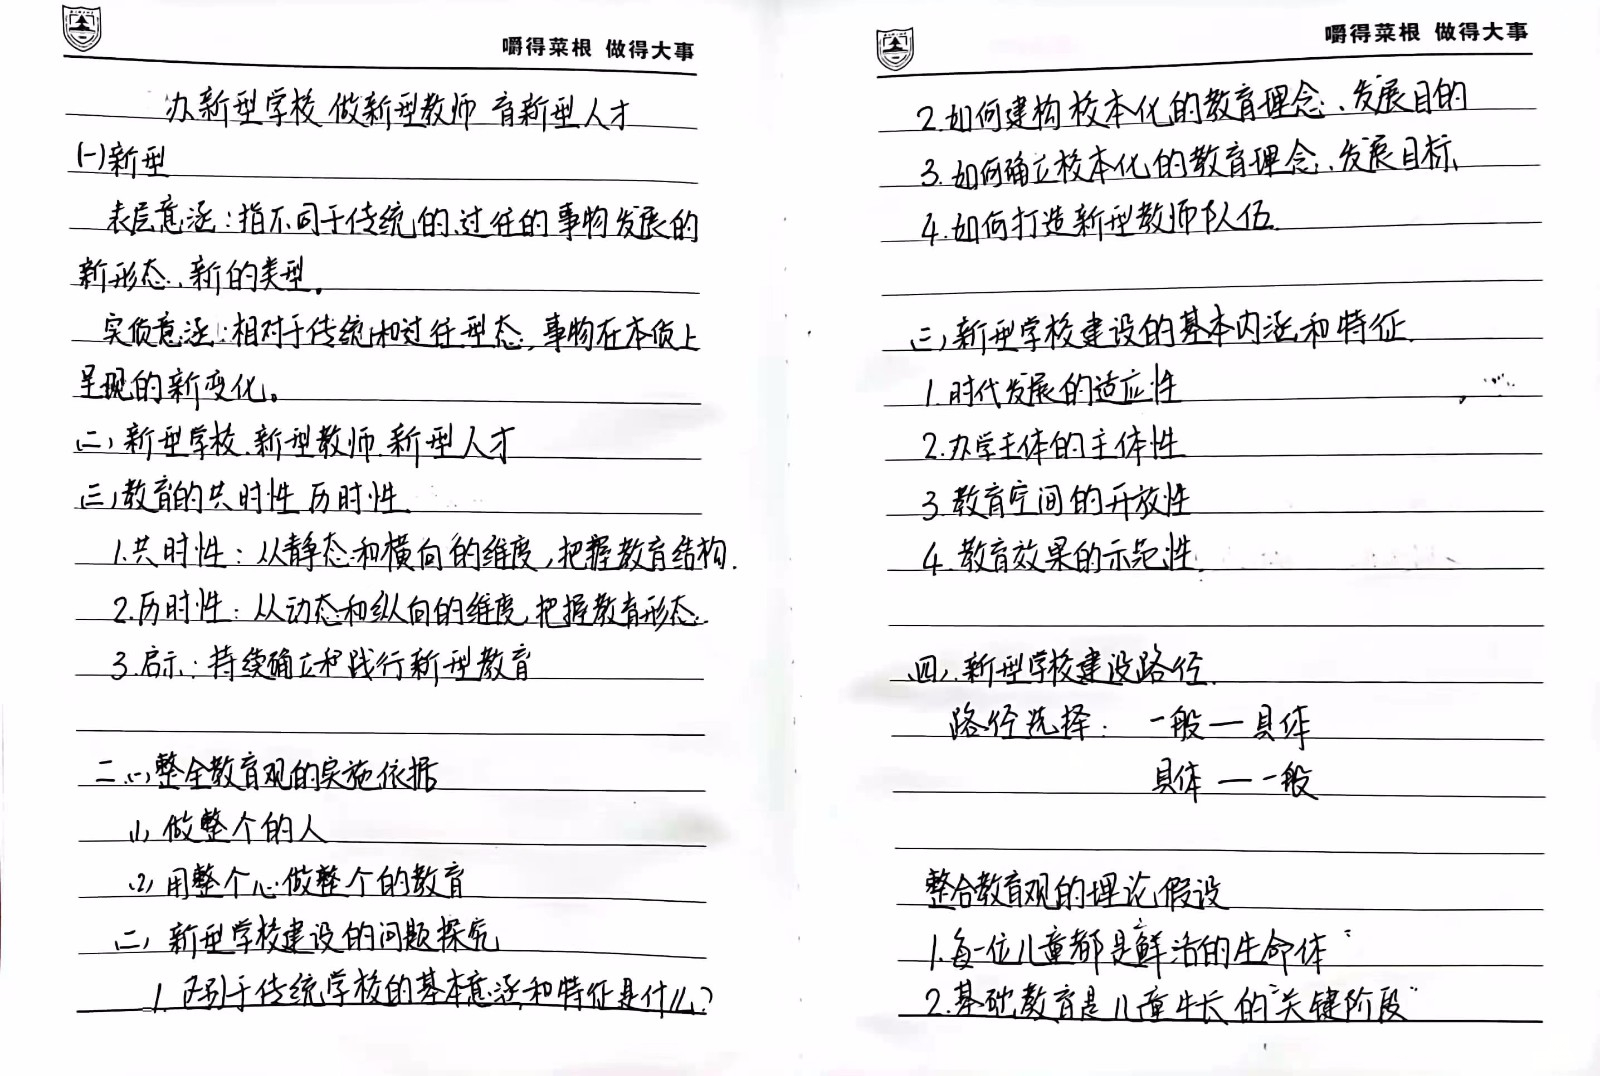 嚼得菜根 做得大事
办新型学校 做新型教师 育新型人才
(一)新型
表层意涵：指不同于传统的、过往的事物发展的
新形态、新的类型。
实质意涵：相对于传统和过往型态，事物在本质上
呈现的新变化。
(二)新型学校、新型教师、新型人才
(三)教育的共时性 历时性
1.共时性：从静态和横向的维度，把握教育结构.
2.历时性：从动态和纵向的维度，把握教育形态.
3.启示：持续确立和践行新型教育
二(一)整全教育观的实施依据
(1)做整个的人
(2)用整个心做整个的教育
(二)新型学校建设的问题探究
1.区别于传统学校的基本意涵和特征是什么？
嚼得菜根 做得大事
2.如何建构校本化的教育理念、发展目的
3.如何确立校本化的教育理念、发展目标
4.如何打造新型教师队伍.
(三)新型学校建设的基本内涵和特征.
1.时代发展的适应性
2.办学主体的主体性
3.教育空间的开放性
4.教育效果的示范性.
(四).新型学校建设路径.
路径选择： 一般—具体
具体—一般
整合教育观的理论假设
1.每一位儿童都是"鲜活的生命体"
2.基础教育是儿童生长的"关键阶段"